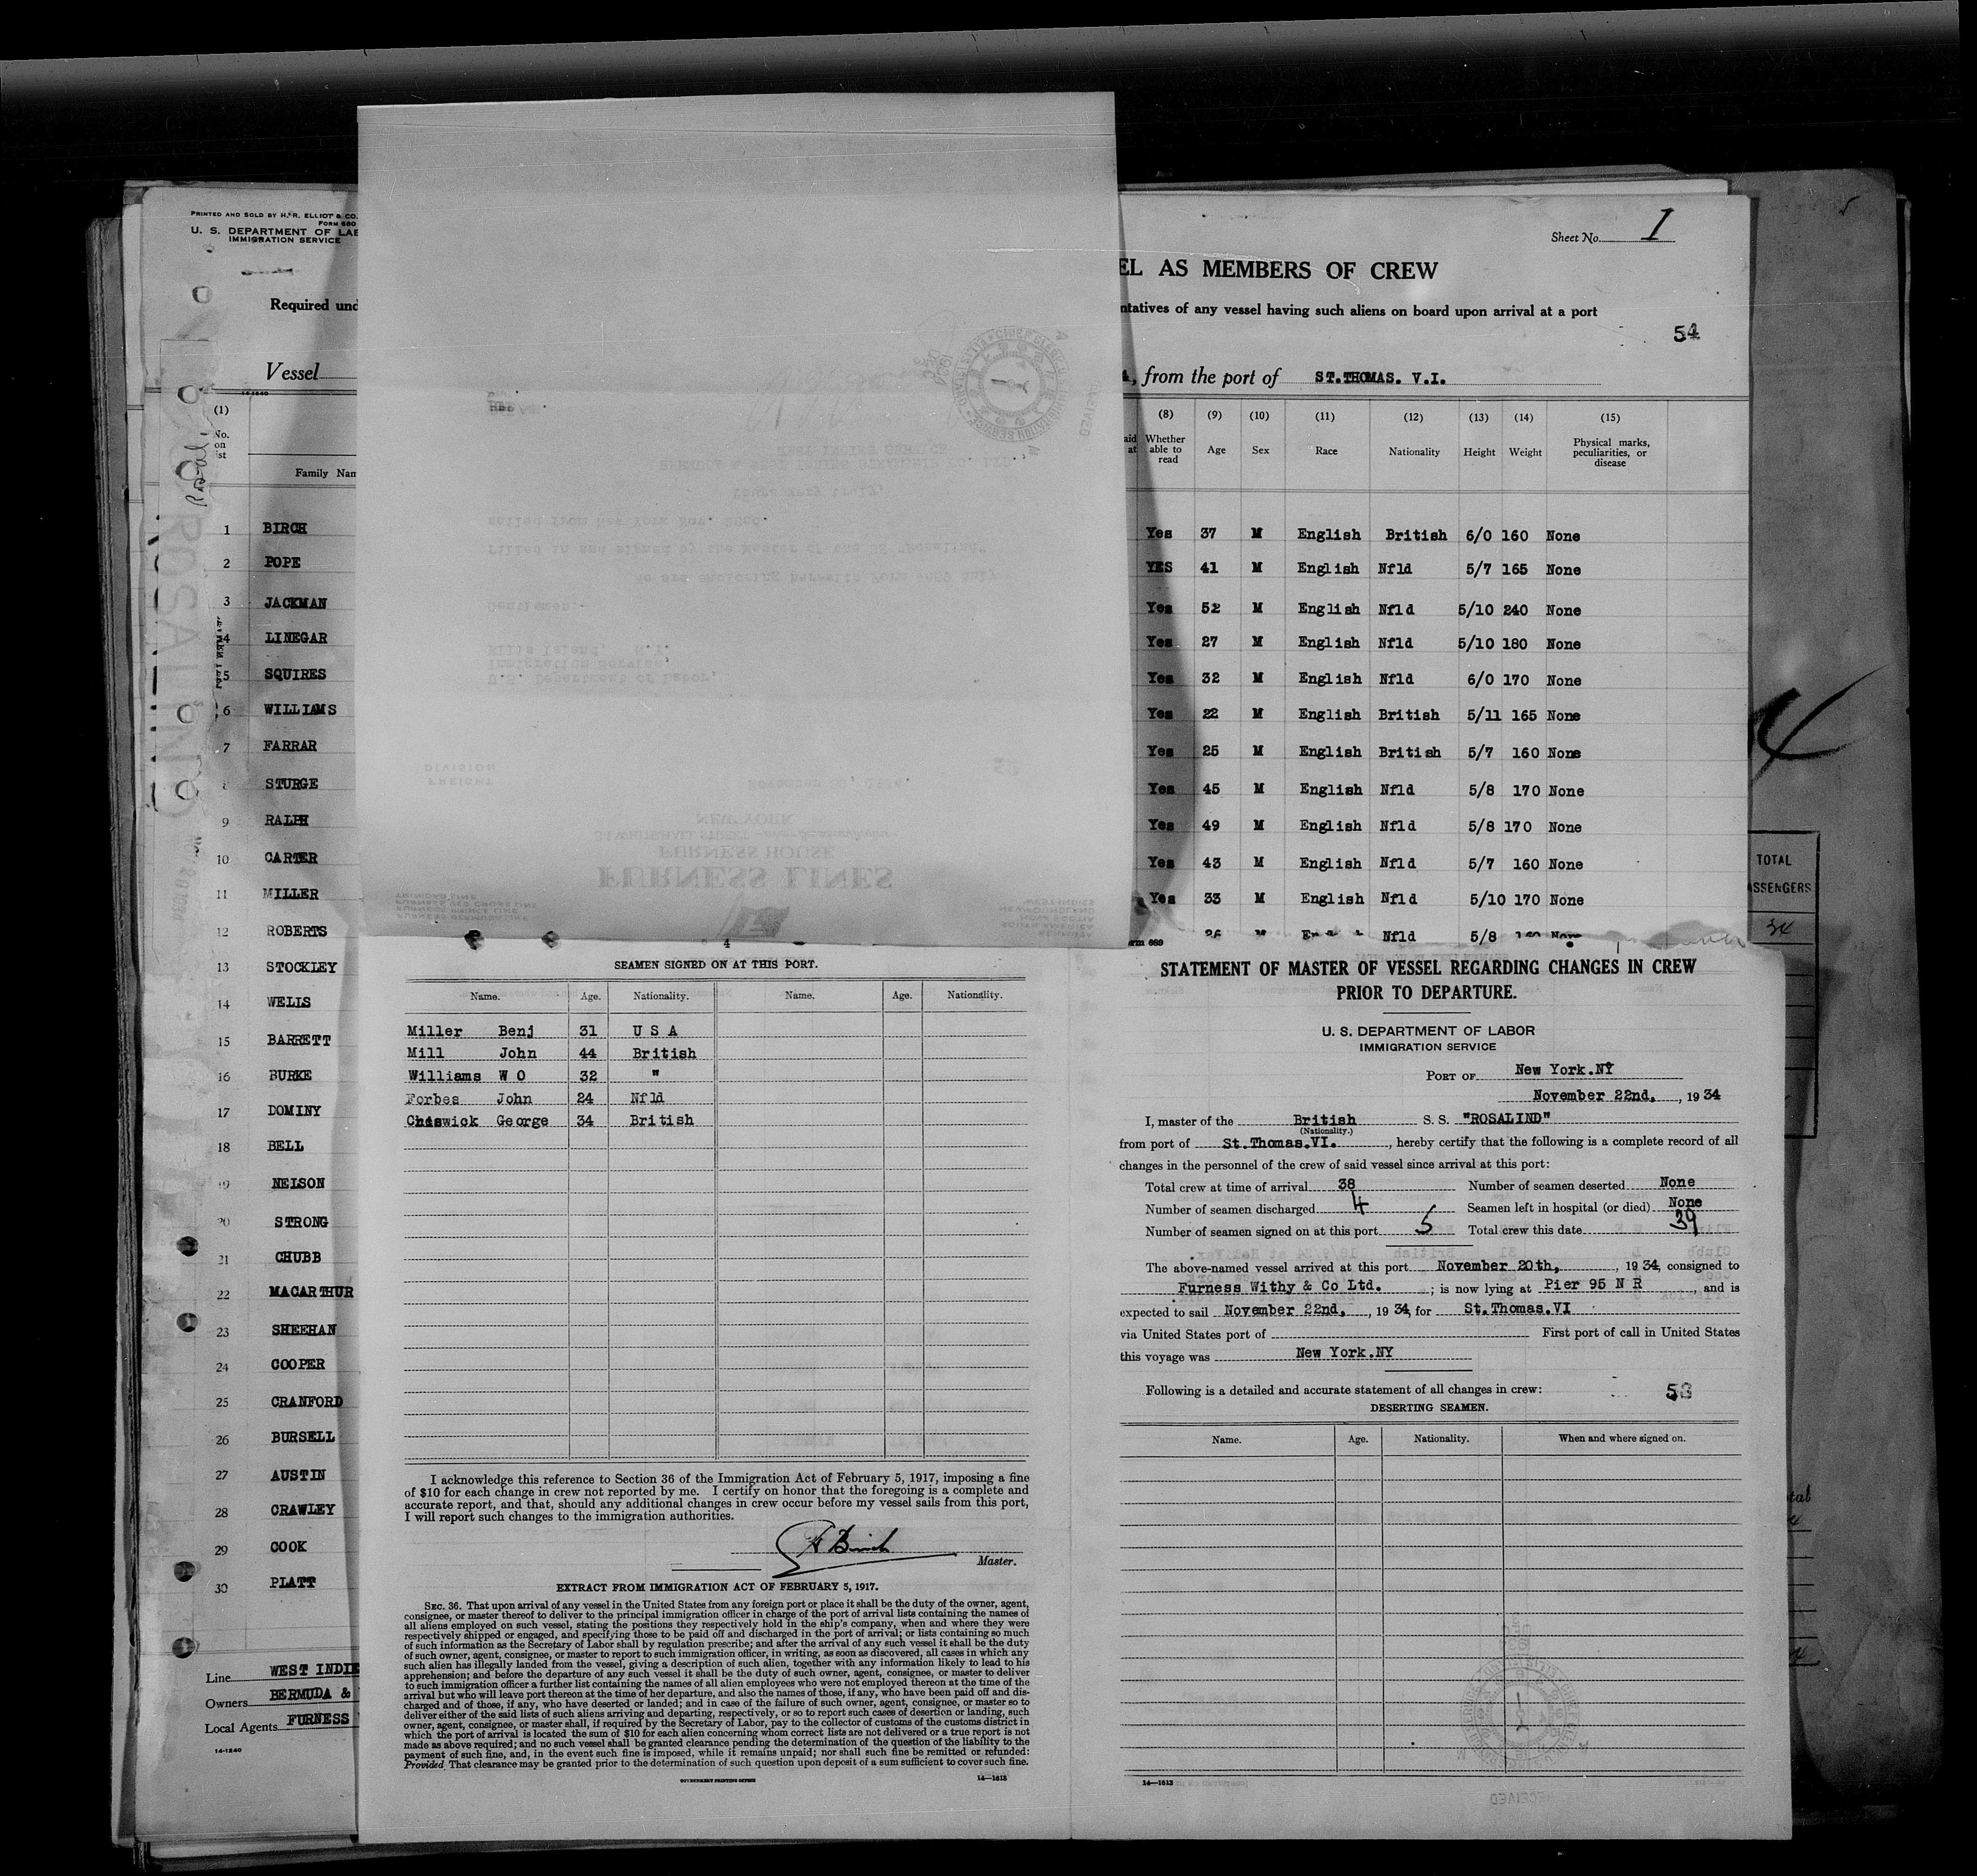 PRINTED AND SOLD BY H. R. ELLIOT & CO.
FORM 680
U. S. DEPARTMENT OF LAB
IMMIGRATION SERVICE
Required und
Vessel
14-1240
(1)
No.
on
list
Family Nam
1 BIRCH
2 POPE
3 JACKMAN
4 LINEGAR
5 SQUIRES
6 WILLIAMS
7 FARRAR
8 STURGE
9 RALPH
10 CARTER
11 MILLER
12 ROBERTS
13 STOCKLEY
14 WELLS
15 BARRETT
16 BURKE
17 DOMINY
18 BELL
19 NELSON
20 STRONG
21 CHUBB
22 MACARTHUR
23 SHEEHAN
24 COOPER
25 CRANFORD
26 BURSELL
27 AUSTIN
28 CRAWLEY
29 COOK
30 PLATT
Line WEST INDIE
Owners BERMUDA &
Local Agents FURNESS
14-1240
Sheet No. 1
EL AS MEMBERS OF CREW
ntatives of any vessel having such aliens on board upon arrival at a port
54
, from the port of ST.THOMAS. V.I.
(8) (9) (10) (11) (12) (13) (14) (15)
Whether able to read Age Sex Race Nationality Height Weight Physical marks, peculiarities, or disease
Yes 37 M English British 6/0 160 None
YES 41 M English Nfld 5/7 165 None
Yes 52 M English Nfld 5/10 240 None
Yes 27 M English Nfld 5/10 180 None
Yes 32 M English Nfld 6/0 170 None
Yes 22 M English British 5/11 165 None
Yes 25 M English British 5/7 160 None
Yes 45 M English Nfld 5/8 170 None
Yes 49 M English Nfld 5/8 170 None
Yes 43 M English Nfld 5/7 160 None
Yes 33 M English Nfld 5/10 170 None
26 M Nfld 5/8
FURNESS LINES
FURNESS HOUSE
NEW YORK
FREIGHT
DIVISION
U.S. Department of Labor,
Immigration Service,
Ellis Island, N.Y.
Gentlemen:-
We are enclosing herewith Form #689 duly
filled in and signed by the Master of the SS "Rosalind"
sailed from New York Nov. 22nd.
Yours very truly,
4
SEAMEN SIGNED ON AT THIS PORT.
Name. Age. Nationality. Name. Age. Nationality.
Miller Benj 31 U S A
Mill John 44 British
Williams W O 32 "
Forbes John 24 Nfld
Cheswick George 34 British
I acknowledge this reference to Section 36 of the Immigration Act of February 5, 1917, imposing a fine
of $10 for each change in crew not reported by me. I certify on honor that the foregoing is a complete and
accurate report, and that, should any additional changes in crew occur before my vessel sails from this port,
I will report such changes to the immigration authorities.
Birch
Master.
EXTRACT FROM IMMIGRATION ACT OF FEBRUARY 5, 1917.
SEC. 36. That upon arrival of any vessel in the United States from any foreign port or place it shall be the duty of the owner, agent,
consignee, or master thereof to deliver to the principal immigration officer in charge of the port of arrival lists containing the names of
all aliens employed on such vessel, stating the positions they respectively hold in the ship's company, when and where they were
respectively shipped or engaged, and specifying those to be paid off and discharged in the port of arrival; or lists containing so much
of such information as the Secretary of Labor shall by regulation prescribe; and after the arrival of any such vessel it shall be the duty
of such owner, agent, consignee, or master to report to such immigration officer, in writing, as soon as discovered, all cases in which any
such alien has illegally landed from the vessel, giving a description of such alien, together with any information likely to lead to his
apprehension; and before the departure of any such vessel it shall be the duty of such owner, agent, consignee, or master to deliver
to such immigration officer a further list containing the names of all alien employees who were not employed thereon at the time of the
arrival but who will leave port thereon at the time of her departure, and also the names of those, if any, who have been paid off and dis-
charged and of those, if any, who have deserted or landed; and in case of the failure of such owner, agent, consignee, or master so to
deliver either of the said lists of such aliens arriving and departing, respectively, or so to report such cases of desertion or landing, such
owner, agent, consignee, or master shall, if required by the Secretary of Labor, pay to the collector of customs of the customs district in
which the port of arrival is located the sum of $10 for each alien concerning whom correct lists are not delivered or a true report is not
made as above required; and no such vessel shall be granted clearance pending the determination of the question of the liability to the
payment of such fine, and, in the event such fine is imposed, while it remains unpaid; nor shall such fine be remitted or refunded:
Provided, That clearance may be granted prior to the determination of such question upon deposit of a sum sufficient to cover such fine.
GOVERNMENT PRINTING OFFICE 14—1613
Form 689
STATEMENT OF MASTER OF VESSEL REGARDING CHANGES IN CREW
PRIOR TO DEPARTURE.
U. S. DEPARTMENT OF LABOR
IMMIGRATION SERVICE
PORT OF New York.NY
November 22nd, , 19 34
I, master of the British S. S. "ROSALIND"
(Nationality.)
from port of St.Thomas.VI. , hereby certify that the following is a complete record of all
changes in the personnel of the crew of said vessel since arrival at this port:
Total crew at time of arrival 38 Number of seamen deserted None
Number of seamen discharged 4 Seamen left in hospital (or died) None
Number of seamen signed on at this port 5 Total crew this date 39
The above-named vessel arrived at this port November 20th, , 19 34, consigned to
Furness Withy & Co Ltd. ; is now lying at Pier 95 N R , and is
expected to sail November 22nd, , 19 34, for St.Thomas.VI
via United States port of First port of call in United States
this voyage was New York.NY
Following is a detailed and accurate statement of all changes in crew:
53
DESERTING SEAMEN.
Name. Age. Nationality. When and where signed on.
14—1613
TOTAL
ASSENGERS
34